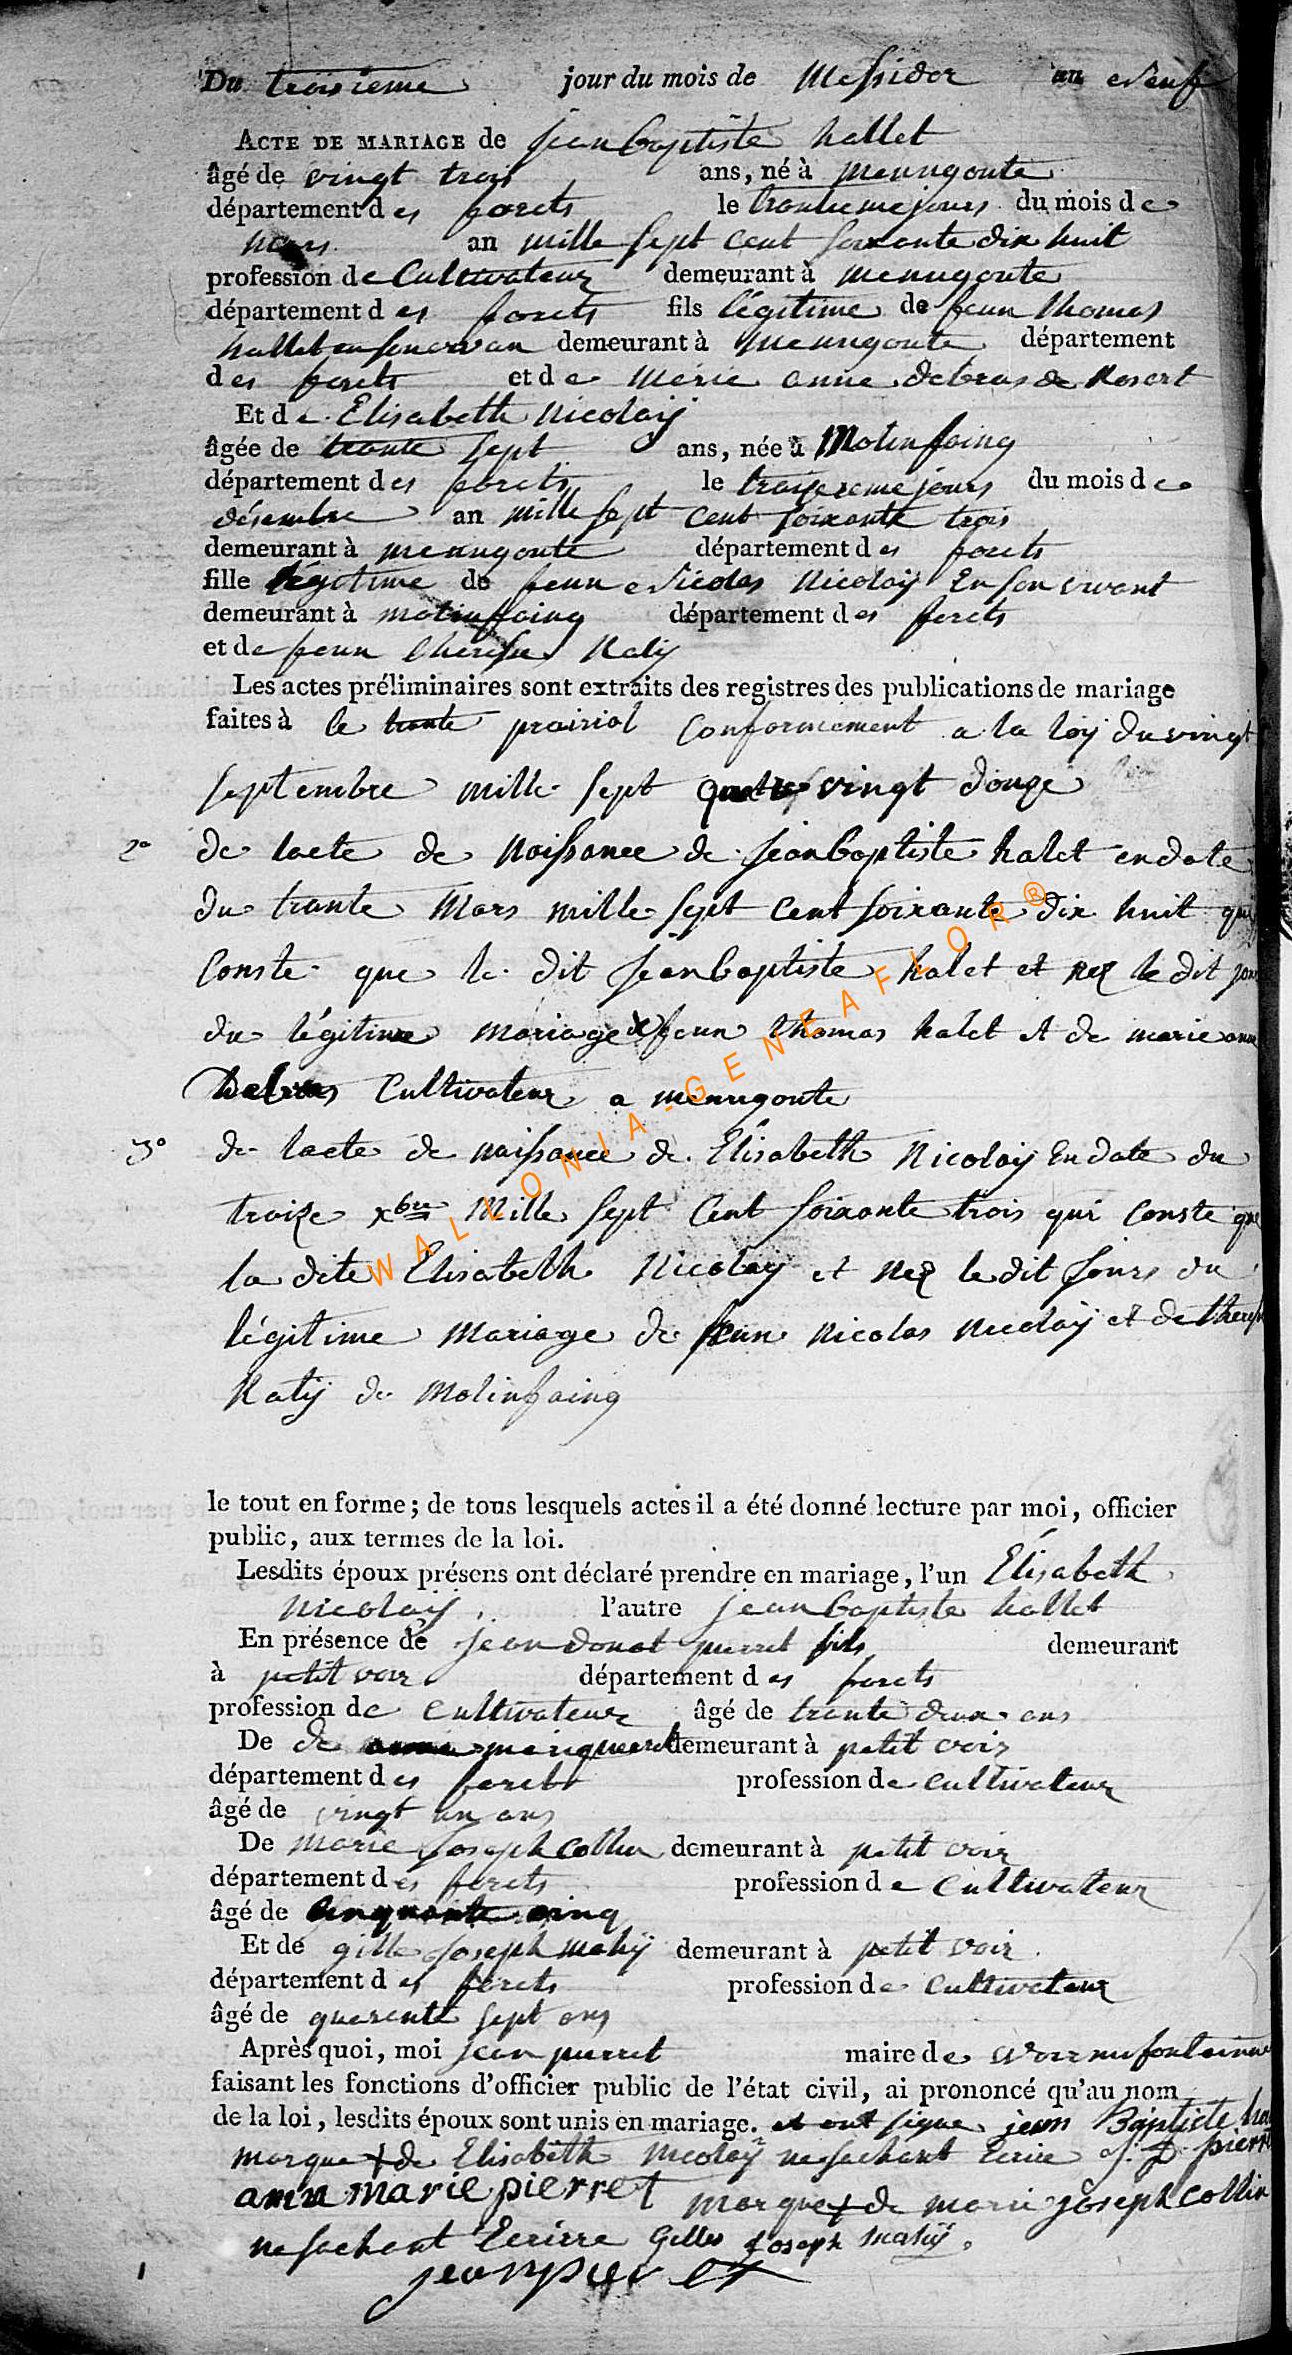 Du troisieme jour du mois de Messidor an Neuf
ACTE DE MARIAGE de jean baptiste hallet
âgé de vingt trois ans, né à menugoute
département des forets le trantiemejours du mois de
Mars an mille sept cent soixante dix huit
profession de Cultivateur demeurant à menugoute
département des forets fils légitime de feun thomas
hallet en demeurant à menugoute département
des forets et de Merie anne debras de Rosert
Et de Elisabeth Nicolaÿ
âgée de trante sept ans, née à Molinfaing
département des forets le traiziemejours du mois de
désembre an mille sept cent soixante trois
demeurant à menugoute département des forets
fille légitime de feun Nicolas Nicolaÿ En son vivant
demeurant à molinfaing département des forets
et de feun therese Katÿ
Les actes préliminaires sont extraits des registres des publications de mariage
faites à le trante prairial conformement a la loÿ du vingt
septembre mille sept quatre vingt douze
2° de lacte de Naissance de jean baptiste halet en date
du trante Mars mille sept cent soixante dix huit qui
Conste que le dit jean baptiste halet et nez le dit jour
du légitime mariage feun thomas halet et de marie anne
Cultivateur a menugoute
3° de lacte de naissance de Elisabeth Nicolaÿ En date du
traize xbre Mille sept Cent soixante trois qui conste que
la dite Elisabeth Nicolaÿ et Nez le dit jours du
légitime Mariage de feun Nicolas Nicolaÿ et de theres
Katÿ de Molinfaing
le tout en forme; de tous lesquels actes il a été donné lecture par moi, officier
public, aux termes de la loi.
Lesdits époux présens ont déclaré prendre en mariage, l'un Elisabeth
Nicolaÿ l'autre jean baptiste hallet
En présence de jean donat pierret fils demeurant
à petit voir département des forets
profession de cultivateur âgé de trante deux ans
De de pierret demeurant à petit voir
département des forets profession de cultivateur
âgé de vingt un ans
De marie joseph Collin demeurant à petit voir
département des forets profession de cultivateur
âgé de Cinquante cinq
Et de gille joseph mahÿ demeurant à petit voir
département des forets profession de cultivateur
âgé de quarente sept ans
Après quoi, moi jean pierret maire de
faisant les fonctions d'officier public de l'état civil, ai prononcé qu'au nom
de la loi, lesdits époux sont unis en mariage. et ont signe jean Baptiste
marque + de Elisabeth Nicolaÿ ne sachant Ecrire j. D pierret
anne marie pierret marque + de marie joseph Collin
ne sachant Ecrirre Gilles joseph mahÿ.
jean pierret
WALLONIA-GENEAFLOR®